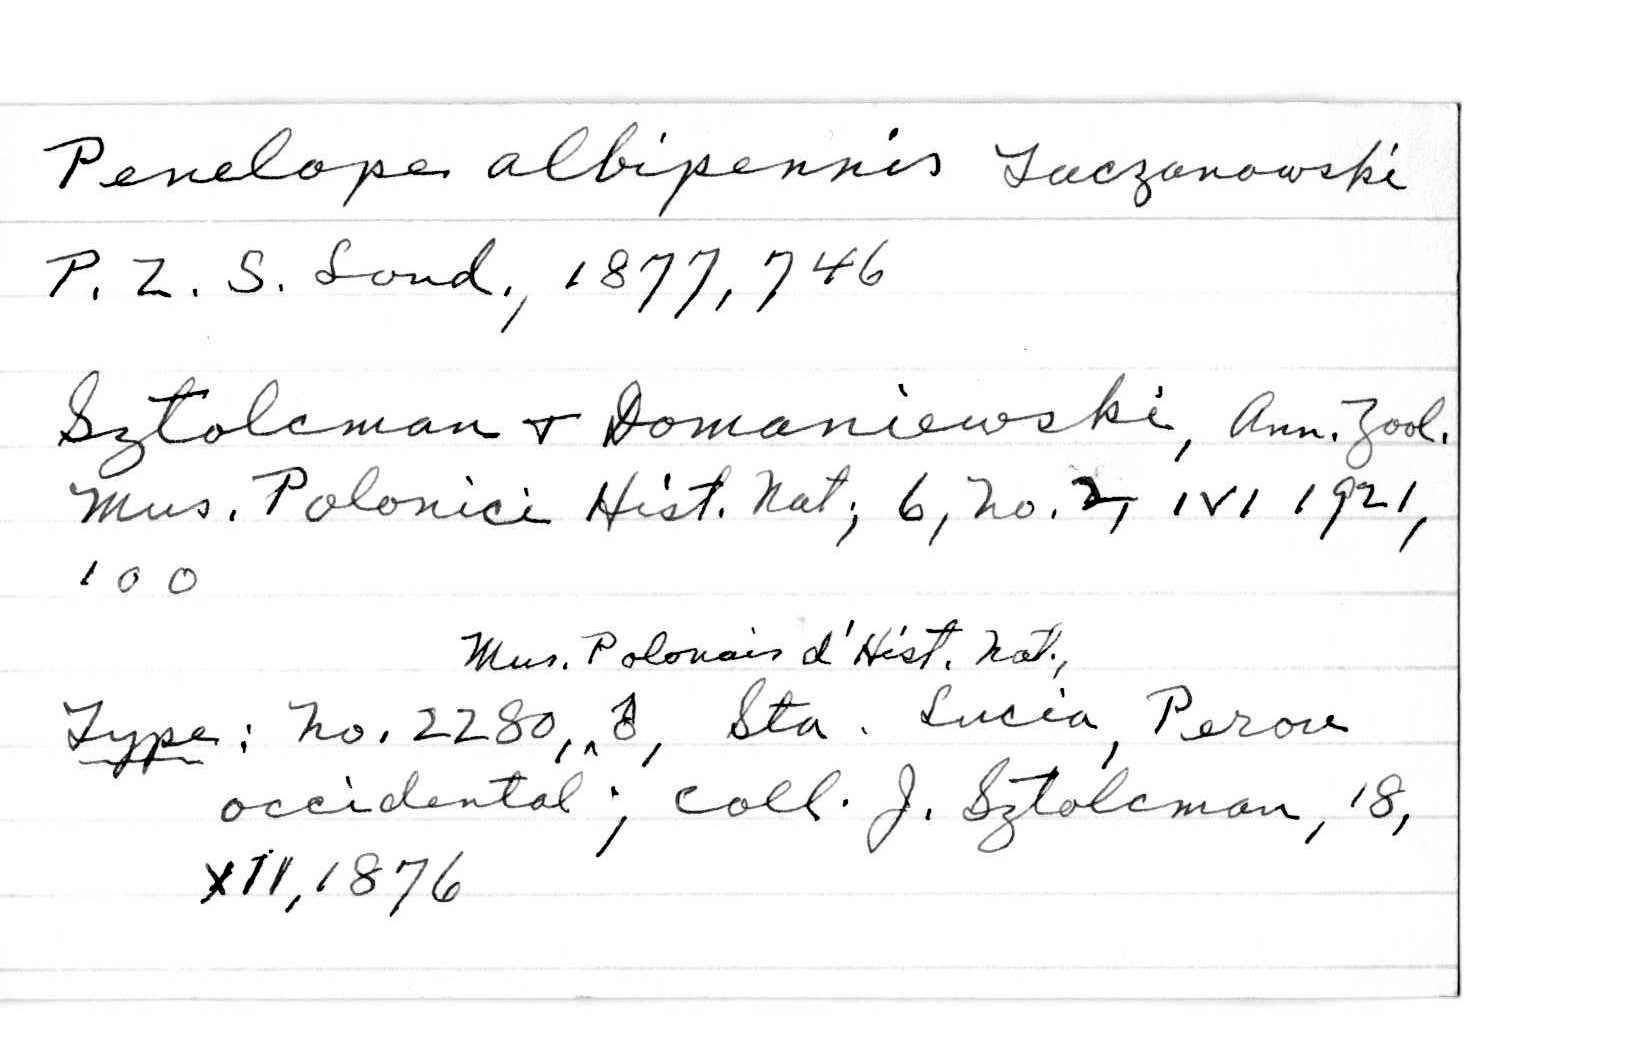 Penelope albipennis Taczanowski
P. Z. S. Lond., 1877, 746
Sztolcman & Domaniewski, Ann. Zool.
Mus. Polonici Hist. Nat; 6, No. 2, 1 VI 1921,
100
Mus. Polonais d'Hist. Nat.,
Type: No. 2280, ^ ♂, Sta. Lucia, Perou
occidental; coll. J. Sztolcman, 18,
XII, 1876